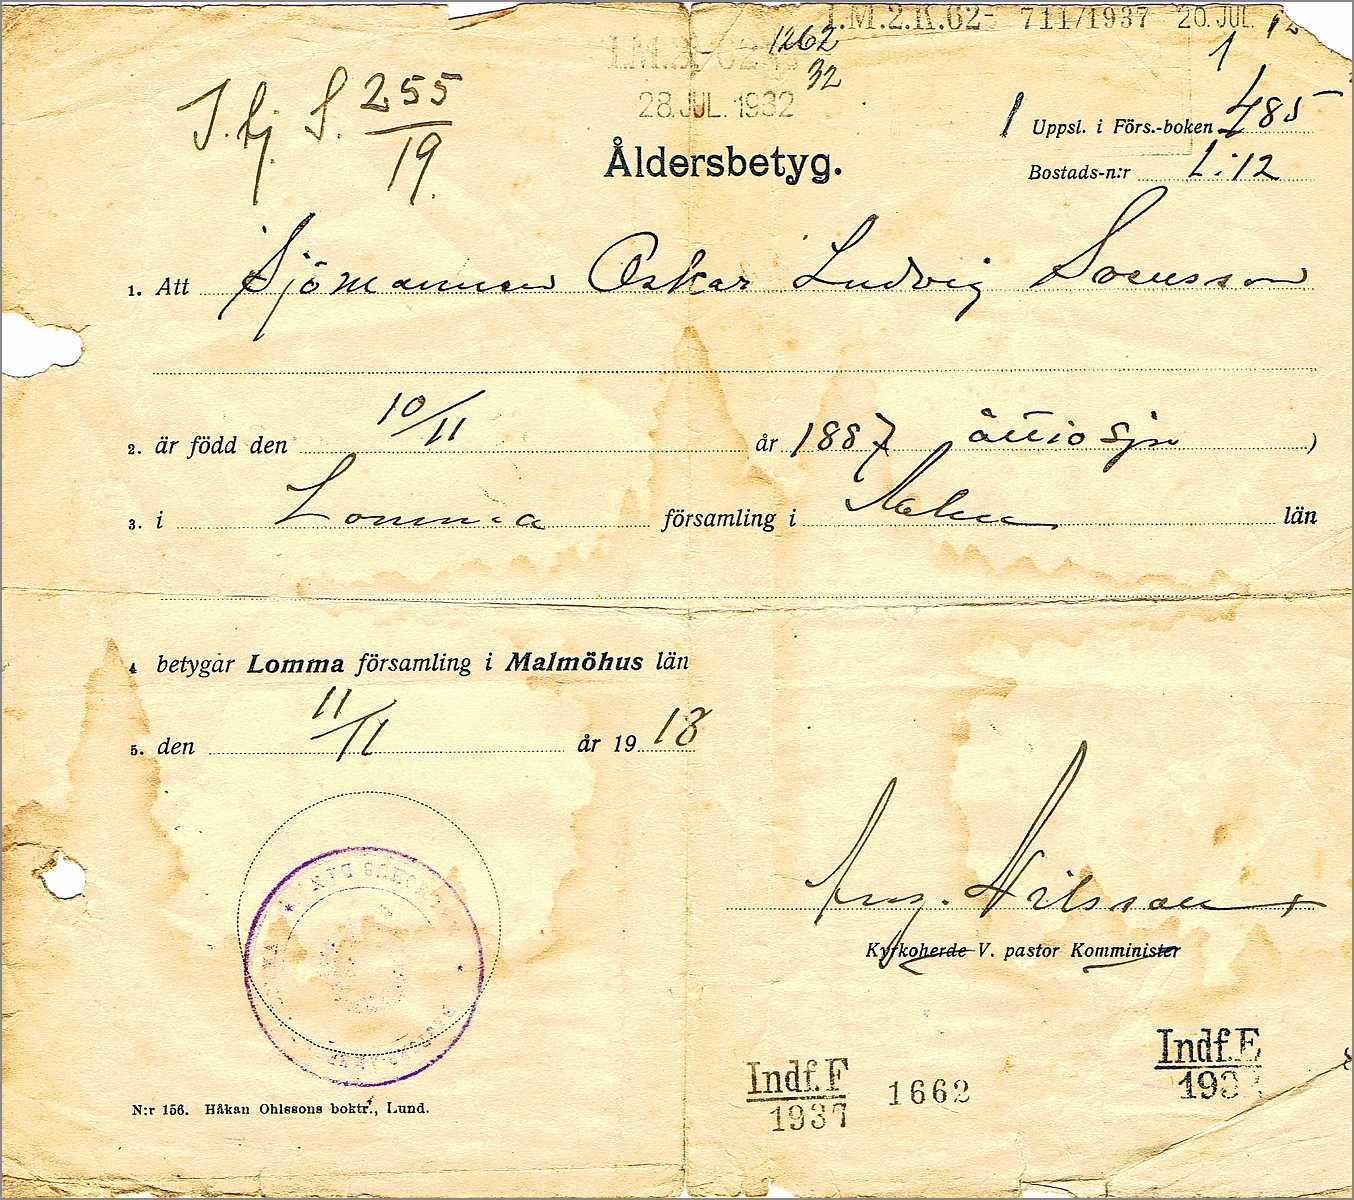 I.M.2.K.62- 711/1937 20. JUL.
1262
32
28. JUL. 1932
J. hj. S. 255
19.
1 Uppsl. i Förs.-boken 485
Åldersbetyg.
Bostads-n:r L:12
1. Att Sjömannen Oskar Ludvig Svensson
2. är född den 10/11 år 1887 åttiosju )
3. i Lomma församling i Malm län
4 betygar Lomma församling i Malmöhus län
5. den 11/11 år 1918
Aug. Nilsson
Kyrkoherde V. pastor Komminister
Indf. F
1937
1662
Indf. E
193
N:r 156. Håkan Ohlssons boktr., Lund.